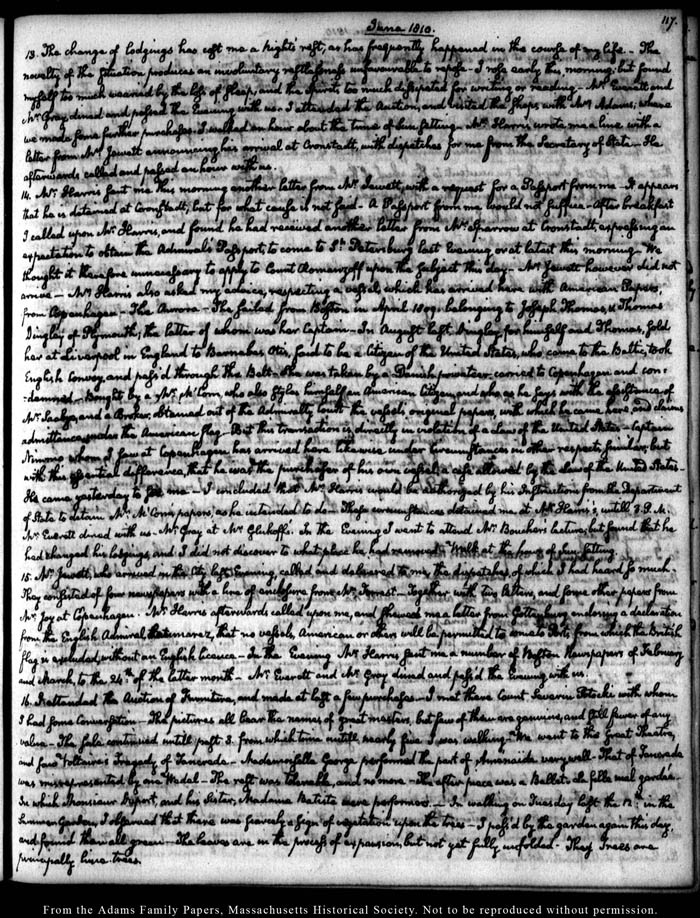 117.
June 1810.
13. The change of lodgings has cost me a night's rest, as has frequently happened in the course of my life. — The
novelty of the situation produces an involuntary restlessness unfavourable to repose — I rose early this morning, but found
myself too much wearied by the loss of sleep, and the spirits too much dissipated for writing or reading — Mr. Everett and
Mr. Gray dined and passed the Evening with us. I attended the Auction, and visited the shops with Mrs. Adams; where
we made some further purchases. I walked an hour about the time of sun-setting — Mr. Harris wrote me a line with a
letter from Mr. Jewett announcing his arrival at Cronstadt, with dispatches for me from the Secretary of State — He
afterwards called and passed an hour with us.
14. Mr. Harris sent me this morning another letter from Mr. Jewett, with a request for a Passport from me — It appears
that he is detained at Cronstadt, but for what cause is not said — A Passport from me would not suffice — After breakfast
I called upon Mr. Harris, and found he had received another letter from Mr. Sparrow at Cronstadt, expressing an
expectation to obtain the Admiral's Passport, to come to St. Petersburg last Evening, or at latest this morning — We
thought it therefore unnecessary to apply to Count Romanzoff upon the subject this day — Mr. Jewett however did not
arrive — Mr. Harris also asked my advice, respecting a vessel which has arrived here with American Papers,
from Copenhagen — The Aurora — She sailed from Boston in April 1809. belonging to Joseph Thomas, & Thomas
Dingley of Plymouth; the latter of whom was her Captain — In August last Dingley, for himself and Thomas, sold
her at Liverpool in England to Barnabas Otis, said to be a Citizen of the United States, who came to the Baltic, took
English Convoy, and pass'd through the Belt — She was taken by a Danish privateer carried to Copenhagen and con-
-demned — Bought by a Mr. M'Corn, who also styles himself an American Citizen, and who, as he says with the assistance of
Mr. Saabye, and a Broker, obtained out of the Admiralty Court the vessel's original papers, with which he came here, and claims
admittance under the American flag — But this transaction is directly in violation of a Law of the United States — Captain
Nimmo whom I saw at Copenhagen has arrived here likewise under circumstances in other respects similar, but
with this essential difference, that he was the purchaser of his own vessel, a case allowed by the Law of the United States —
He came yesterday to see me — I concluded that Mr. Harris would be authorized by his Instructions from the Department
of State to detain Mr. M'Corn's papers, as he intended to do — These circumstances detained me at Mr. Harris's, until 3. P.M.
Mr. Everett dined with us — Mr. Gray at Mr. Glukoff's. In the Evening I went to attend Mr. Boucher's lecture, but found that he
had changed his lodgings, and I did not discover to what place he had removed — Walk at the hour of sun-setting.
15. Mr. Jewett, who arrived in the City last Evening, called and delivered to me, the dispatches, of which I had heard so much —
They consisted of four newspapers with a line of enclosure from Mr. Forrest — Together with two letters, and some other papers from
Mr. Joy at Copenhagen — Mr. Harris afterwards called upon me, and shewed me a letter from Gottenburg enclosing a declaration
from the English Admiral Saumarez, that no vessels, American or other will be permitted to come to Ports, from which the British
flag is excluded, without an English licence — In the Evening Mr. Harris sent me a number of Boston Newspapers of February
and March, to the 24th. of the latter month — Mr. Everett and Mr. Gray dined and pass'd the Evening with us.
16. I attended the Auction of Furniture, and made at last a few purchases — I met there Count Severin Potocki with whom
I had some Conversation — The pictures all bear the names of great masters, but few of them are genuine, and still fewer of any
value — The sale continued until past 3. from which time until nearly five I was walking. We went to the Great Theatre,
and saw Voltaire's Tragedy of Tancrede — Mademoiselle George performed the part of Amenaide very well — That of Tancrede
was misrepresented by one Wedel — The rest was tolerable, and no more — The after piece was a Ballet — La fille mal gardée —
In which Monsieur Duport, and his Sister, Madame Batiste were performers — In walking on Tuesday last the 12: in the
Summer Garden, I observed that there was scarcely a sign of vegetation upon the trees — I pass'd by the garden again this day,
and found them all green — The leaves are in the process of expansion, but not yet fully unfolded — They Trees are
principally lime-trees.
From the Adams Family Papers, Massachusetts Historical Society. Not to be reproduced without permission.